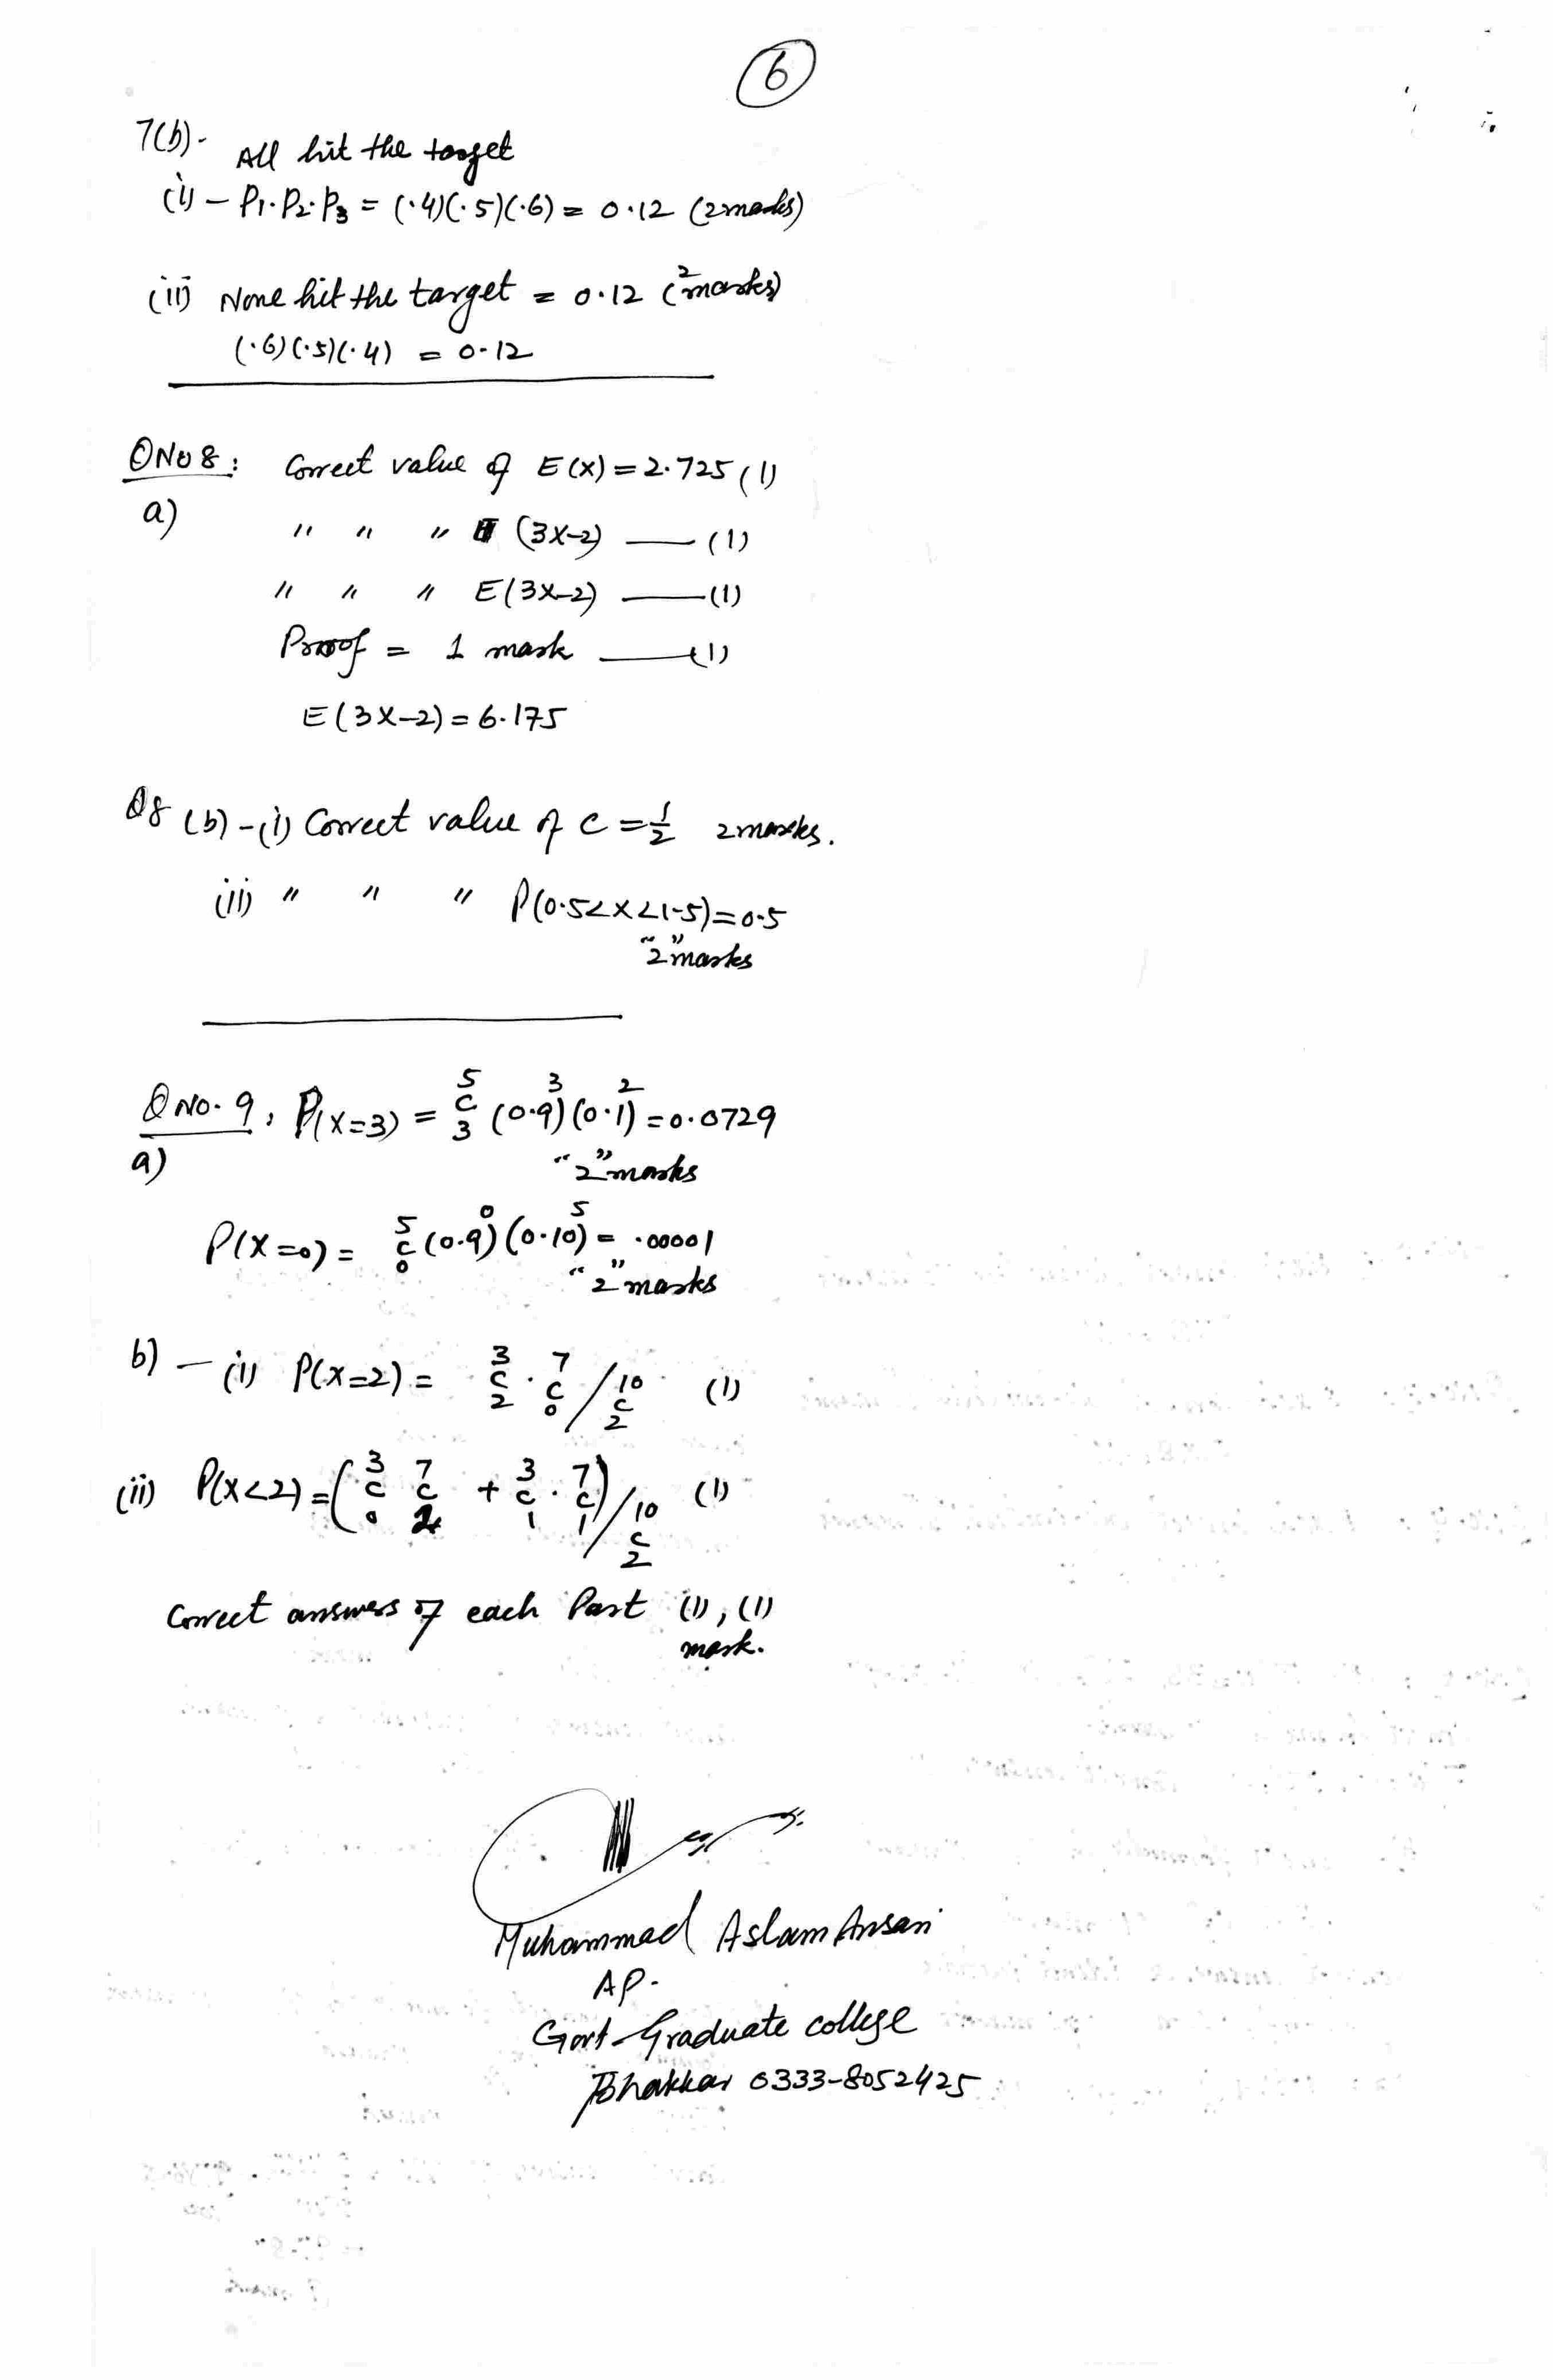 6
7(b)- All hit the target
(i) - P₁.P₂.P₃ = (.4)(.5)(.6) = 0.12 (2marks)
(ii) None hit the target = 0.12 (2 marks)
(.6)(.5)(.4) = 0.12
Q No 8: Correct value of E(X) = 2.725 (1)
a) " " " (3X-2) — (1)
" " " E(3X-2) — (1)
Proof = 1 mark — (1)
E(3X-2) = 6.175
Q8 (b) - (i) Correct value of C = 1/2 2marks.
(ii) " " " P(0.5<X<1.5)=0.5
"2" marks
Q No. 9, P(X=3) = ⁵C₃ (0.9)³ (0.1)² = 0.0729
a) "2" marks
P(X=0) = ⁵C₀ (0.9)⁰ (0.10)⁵ = .00001
"2" marks
b) - (i) P(X=2) = ³C₂ . ⁷C₀ / ¹⁰C₂ (1)
(ii) P(X<2) = (³C₀ ⁷C₂ + ³C₁ . ⁷C₁) / ¹⁰C₂ (1)
Correct answers of each Part (1), (1)
mark.
Muhammad Aslam Ansari
AP.
Govt-Graduate college
Bhakkar 0333-8052425